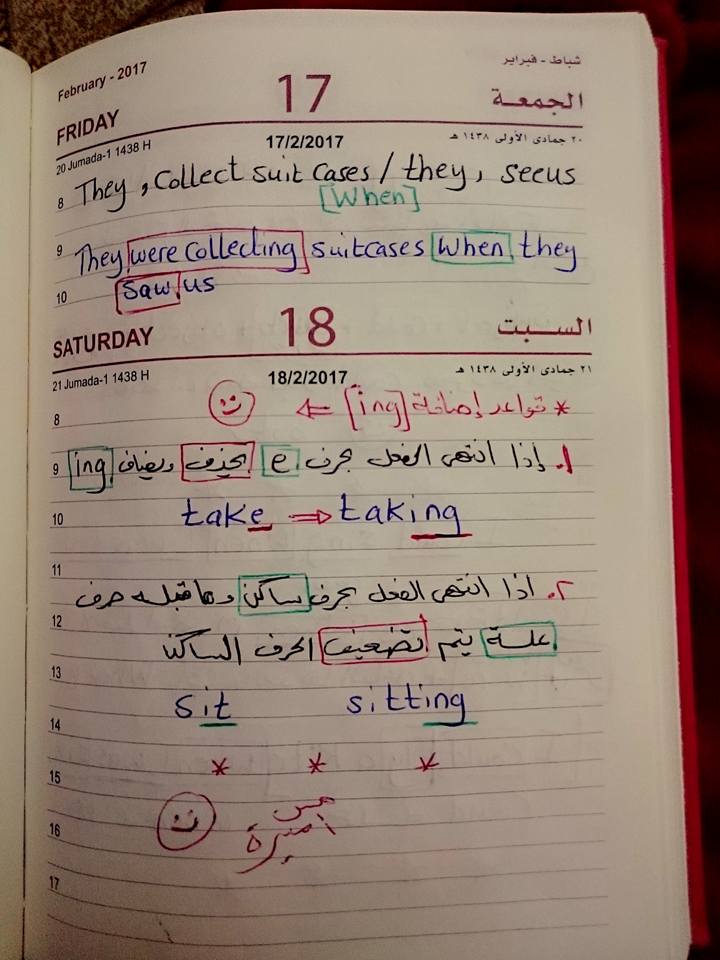 February - 2017 17 شباط - فبراير
FRIDAY الجمعـــة
20 Jumada-1 1438 H 17/2/2017 ٢٠ جمادى الأولى ١٤٣٨ هـ
8 They, Collect suit cases / they, see us
[When]
9 They were collecting suitcases when they
10 saw us
SATURDAY 18 السبت
21 Jumada-1 1438 H 18/2/2017 ٢١ جمادى الأولى ١٤٣٨ هـ
8 * قواعد إضافة [ing] ⇐
9 ١. إذا انتهى الفعل بحرف e يحذف ويضاف ing
10 take ⇒ taking
11
٢. اذا انتهى الفعل بحرف ساكن وما قبله حرف
12
علة يتم تضعيف الحرف الساكن
13
sit sitting
14
* * *
15
مس
16 أميرة
17